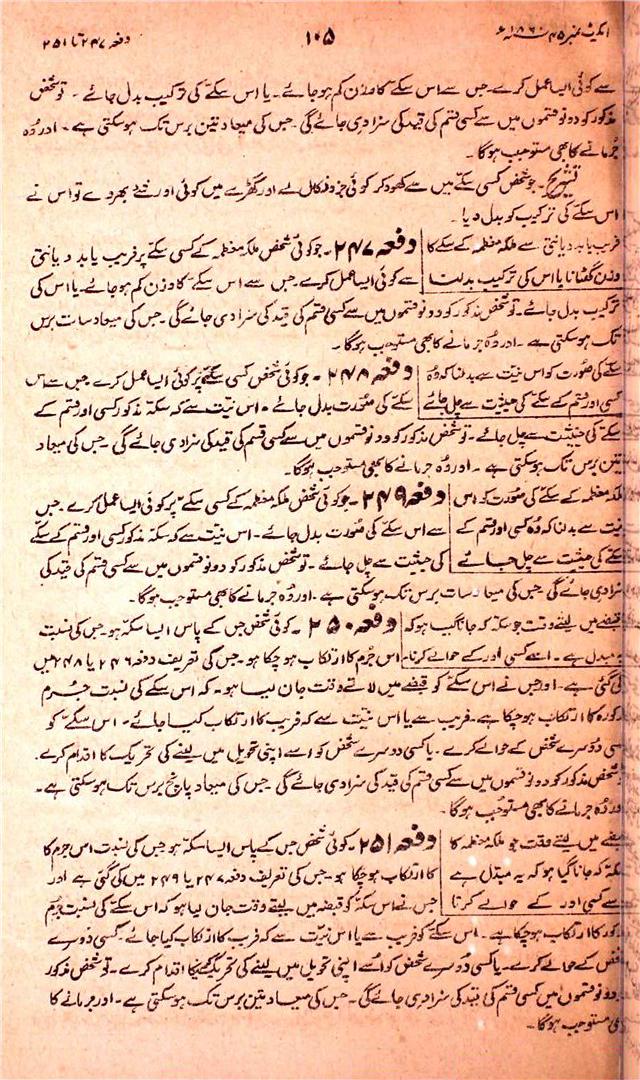 ایکٹ نمبر ۴۵ ۱۸۶۰ء ۱۰۵ دفعہ ۲۴۷ تا ۲۵۱
سے کوئی ایسا عمل کرے۔ جس سے اس سکّے کا وزن کم ہو جائے۔ یا اس سکّے کی ترکیب بدل جائے۔ تو شخص
مذکور کو دونو قسموں میں سے کسی قسم کی قید کی سزا دی جائے گی۔ جس کی میعاد تین برس تک ہو سکتی ہے۔ اور وُہ
جُرمانے کا بھی مستوجب ہوگا۔
تشریح۔ جو شخص کسی سکّے میں سے کھود کر کوئی جزو نکال لے اور گڑھے میں کوئی اور شے بھر دے تو اس نے
اس سکّے کی ترکیب کو بدل دیا۔
فریب یا بد دیانتی سے ملکہ معظمہ کے سکّے کا دفعہ ۲۴۷۔ جو کوئی شخص ملکہ معظمہ کے کسی سکّے پر فریب یا بد دیانتی
وزن گھٹانا یا اس کی ترکیب بدلنا سے کوئی ایسا عمل کرے جس سے اس سکّے کا وزن کم ہو جائے۔ یا اس کی
ترکیب بدل جائے۔ تو شخص مذکور کو دونو قسموں میں سے کسی قسم کی قید کی سزا دی جائے گی۔ جس کی میعاد سات برس
تک ہو سکتی ہے۔ اور وُہ جرمانے کا بھی مستوجب ہوگا۔
سکّے کی صُورت کو اس نیت سے بدلنا کہ وُہ دفعہ ۲۴۸۔ جو کوئی شخص کسی سکّے پر کوئی ایسا عمل کرے جس سے اس
کسی اور قسم کے سکّے کی حیثیت سے چل جائے سکّے کی صُورت بدل جائے۔ اس نیت سے کہ سکّہ مذکور کسی اور قسم کے
سکّے کی حیثیت سے چل جائے۔ تو شخص مذکور کو دونو قسموں میں سے کسی قسم کی قید کی سزا دی جائے گی۔ جس کی میعاد
تین برس تک ہو سکتی ہے۔ اور وُہ جرمانے کا بھی مستوجب ہوگا۔
ملکہ معظمہ کے سکّے کی صُورت کو اس دفعہ ۲۴۹۔ جو کوئی شخص ملکہ معظمہ کے کسی سکّے پر کوئی ایسا عمل کرے۔ جس
نیت سے بدلنا کہ وُہ کسی اور قسم کے سے اس سکّے کی صُورت بدل جائے۔ اس نیت سے کہ سکّہ مذکور کسی اور قسم کے سکّے
سکّے کی حیثیت سے چل جائے کی حیثیت سے چل جائے۔ تو شخص مذکور کو دونو قسموں میں سے کسی قسم کی قید کی
سزا دی جائے گی۔ جس کی میعاد سات برس تک ہو سکتی ہے۔ اور وُہ جرمانے کا بھی مستوجب ہوگا۔
قبضے میں لیتے وقت جو سکّہ کہ جانا گیا ہو کہ دفعہ ۲۵۰۔ کوئی شخص جس کے پاس ایسا سکّہ ہو۔ جس کی نسبت
یہ مبدل ہے۔ اسے کسی اور کے حوالے کرنا۔ اس جُرم کا ارتکاب ہو چکا ہو۔ جس کی تعریف دفعہ ۲۴۶ یا ۲۴۸ میں
کی گئی ہے۔ اور جس نے اس سکّے کو قبضے میں لاتے وقت جان لیا ہو۔ کہ اس سکّے کی نسبت جرم
مذکورہ کا ارتکاب ہو چکا ہے۔ فریب سے یا اس نیت سے کہ فریب کا ارتکاب کیا جائے۔ اس سکّے کو
کسی دُوسرے شخص کے حوالے کرے۔ یا کسی دوسرے شخص کو اسے اپنی تحویل میں لینے کی تحریک کا اقدام کرے۔
تو شخص مذکور کو دونو قسموں میں سے کسی قسم کی قید کی سزا دی جائے گی۔ جس کی میعاد پانچ برس تک ہو سکتی ہے۔
اور وُہ جرمانے کا بھی مستوجب ہوگا۔
قبضے میں لیتے وقت جو ملکہ معظمہ کا دفعہ ۲۵۱۔ کوئی شخص جس کے پاس ایسا سکّہ ہو جس کی نسبت اس جرم کا
سکّہ کہ جانا گیا ہو کہ یہ مبدل ہے ارتکاب ہو چکا ہو۔ جس کی تعریف دفعہ ۲۴۷ یا ۲۴۹ میں کی گئی ہے اور
اسے کسی اور کے حوالے کرنا جس نے اس سکّہ کو قبضہ میں لیتے وقت جان لیا ہو کہ اس سکّے کی نسبت جرم
مذکور کا ارتکاب ہو چکا ہے۔ اس سکّے کو فریب سے یا اس نیّت سے کہ فریب کا ارتکاب کیا جائے۔ کسی دُوسرے
شخص کے حوالے کرے۔ یا کسی دُوسرے شخص کو اُسے اپنی تحویل میں لینے کی تحریک کرنیکا اقدام کرے۔ تو شخص مذکور
کو دونو قسموں میں کسی قسم کی قید کی سزا دی جائے گی۔ جس کی میعاد تین برس تک ہو سکتی ہے۔ اور جرمانے کا
بھی مستوجب ہوگا۔